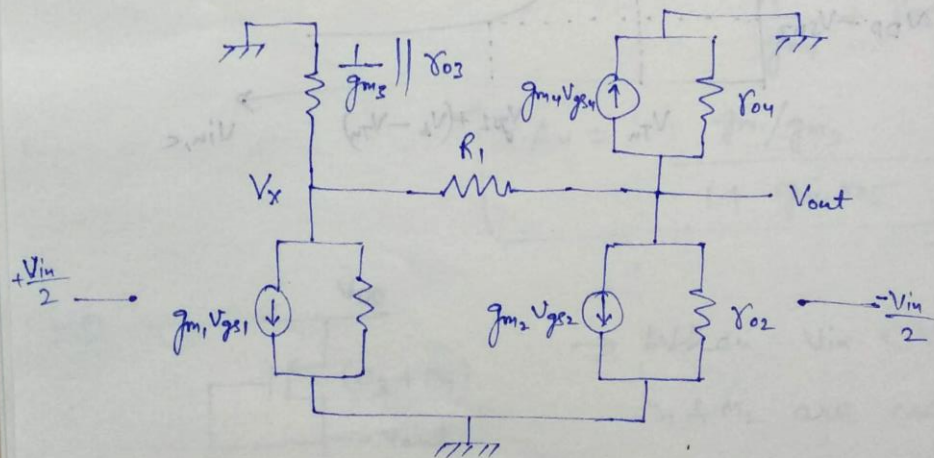 1/gm3 || ro3
gm4 Vgs4
ro4
R1
Vx
Vout
+Vin/2
gm1 Vgs1
gm2 Vgs2
ro2
-Vin/2